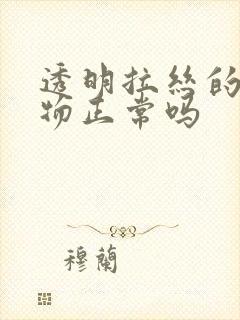 透明拉絲的
物正常吗
穆蘭